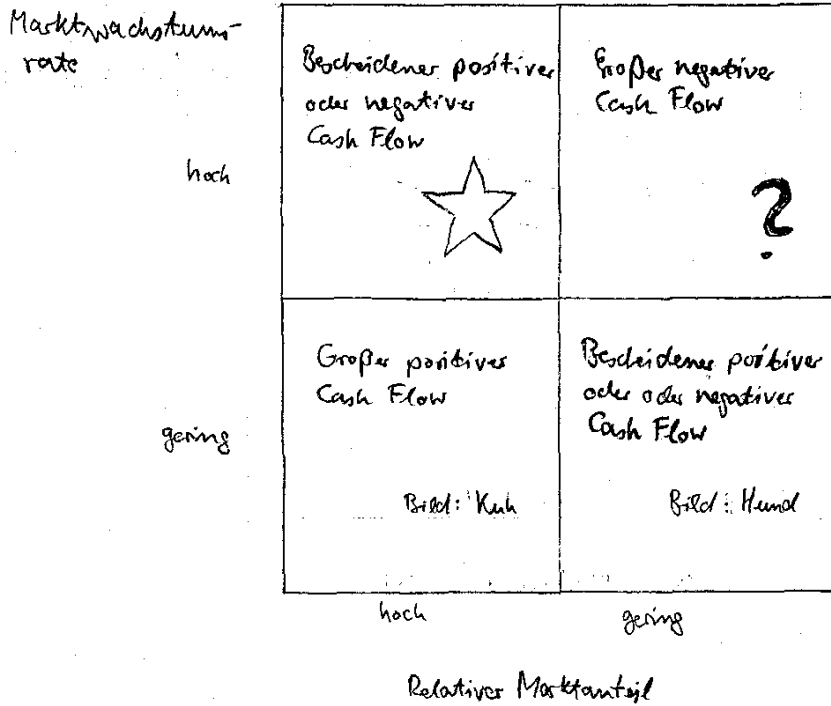 Marktwachstums-
rate
Bescheidener positiver
oder negativer
Cash Flow
Großer negativer
Cash Flow
hoch
?
Großer positiver
Cash Flow
Bescheidener positiver
oder oder negativer
Cash Flow
gering
Bild: Kuh
Bild: Hund
hoch
gering
Relativer Marktanteil